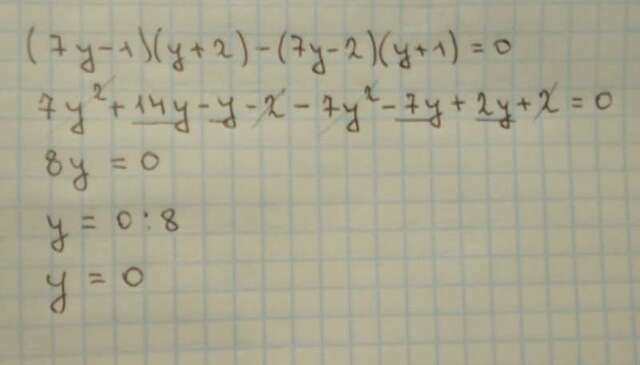 (7y-1)(y+2)-(7y-2)(y+1)=0
7y²+14y-y-2-7y²-7y+2y+2=0
8y=0
y=0:8
y=0